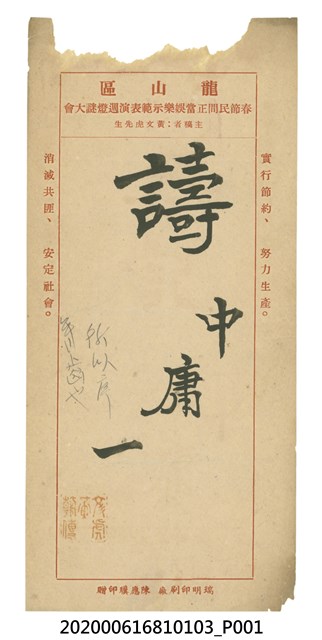 龍山區
春節民間正當娛樂示範表演週燈謎大會
主稿者：黃文虎先生
實行節約、努力生產。
譸
中庸一
所以序
齒也
消滅共匪、安定社會。
瑞明印刷廠 陳應印贈
202000616810103_P001